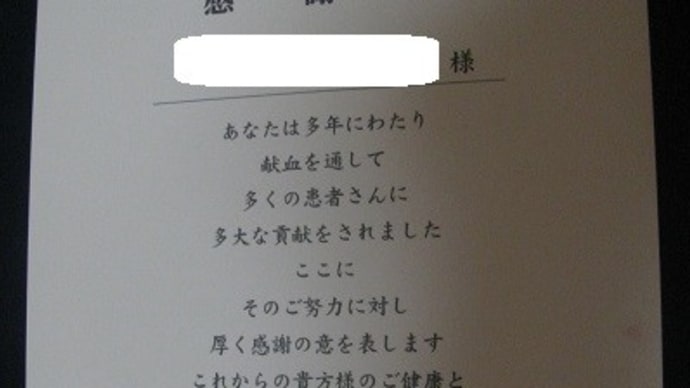 感謝
様
あなたは多年にわたり
献血を通して
多くの患者さんに
多大な貢献をされました
ここに
そのご努力に対し
厚く感謝の意を表します
これからの貴方様のご健康と